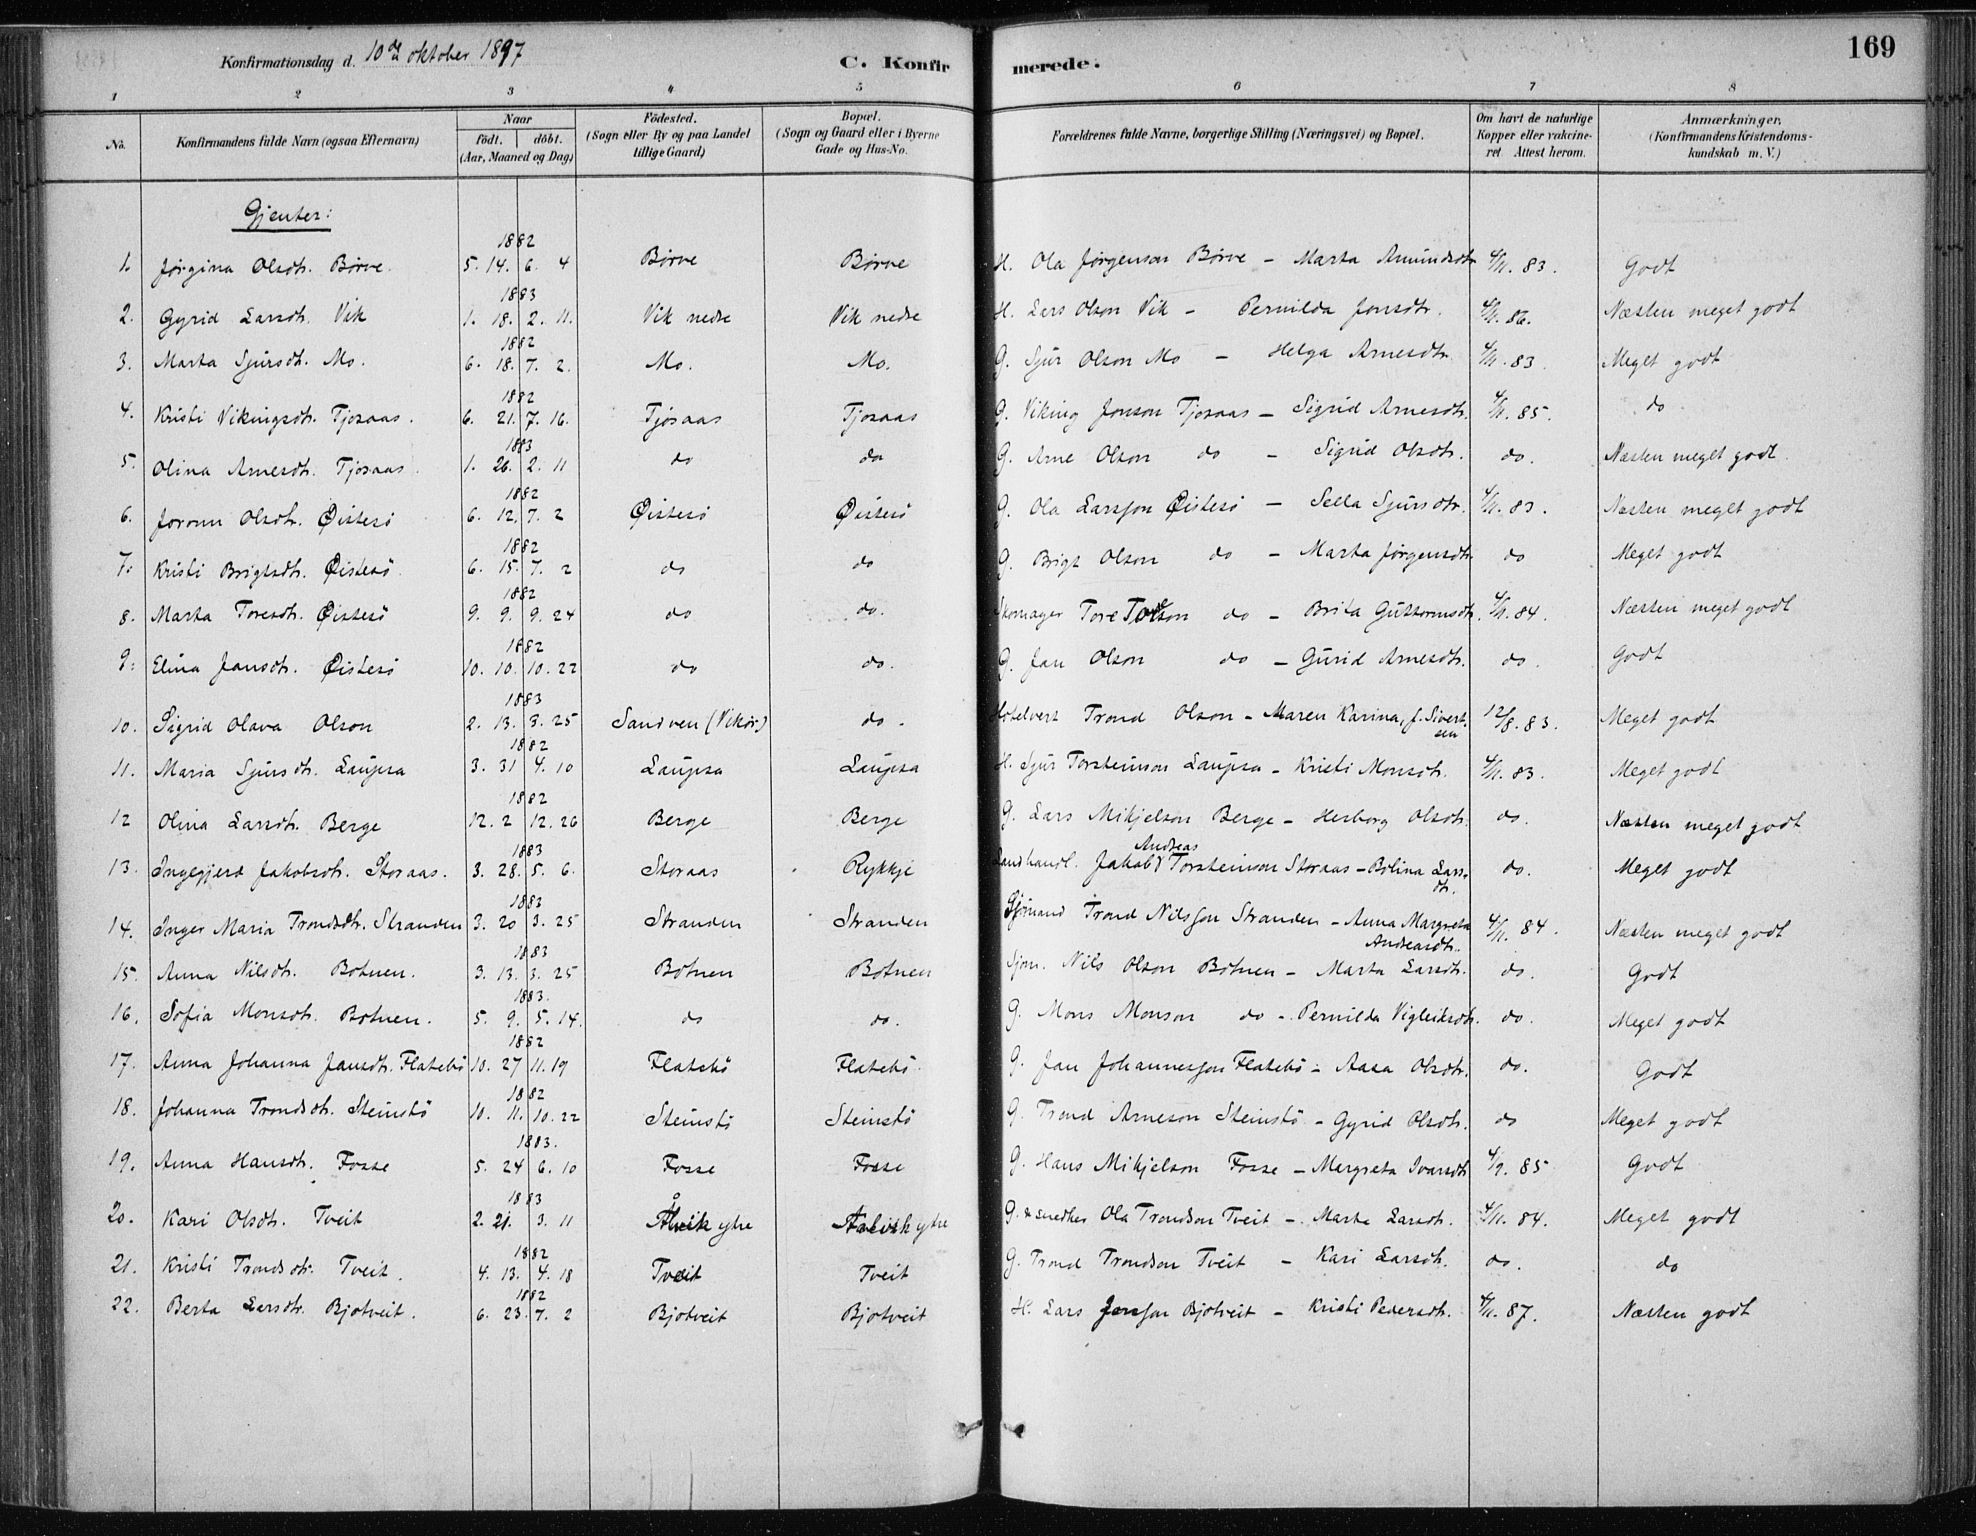 Konfirmationsdag d. 10de oktober 1897
C. Konfirmerede.
169
1 2 3 4 5 6 7 8
No.
Konfirmandens fulde Navn (ogsaa Efternavn)
Naar
født. døbt.
(Aar, Maaned og Dag)
Fødested.
(Sogn eller By og paa Landet
tillige Gaard)
Bopæl.
(Sogn og Gaard eller i Byerne
Gade og Hus-No.
Forældrenes fulde Navne, borgerlige Stilling (Næringsvei) og Bopæl.
Om havt de naturlige
Kopper eller vakcine-
ret Attest herom.
Anmærkninger.
(Konfirmandens Kristendoms-
kundskab m. V.)
Gjenter:
1. Jørgina Olsdtr. Børve. 1882 5. 14. 6. 4 Børve Børve H. Ola Jørgenson Børve – Marta Amundsdtr. 4/11. 83. Godt
2. Gyrid Larsdtr. Vik 1883 1. 18. 2. 11. Vik nedre Vik nedre H. Lars Olson Vik – Pernilda Jonsdtr. 4/11. 86. Næsten meget godt
3. Marta Sjursdtr. Mo. 1882 6. 18. 7. 2. Mo. Mo. G. Sjur Olson Mo – Helga Arnesdtr. 4/11. 83. Meget godt
4. Kristi Vikingsdtr. Tjosaas. 1882 6. 21. 7. 16. Tjosaas Tjosaas G. Viking Jonson Tjosaas – Sigrid Arnesdtr. 4/11. 85. do
5. Olina Arnesdtr. Tjosaas 1883 1. 26. 2. 11 do do G. Arne Olson do – Sigrid Olsdtr. do. Næsten meget godt.
6. Joronn Olsdtr. Øistesö 1882 6. 12. 7. 2 Øistesö Øistesö G. Ola Larsson Øistesö – Sella Sjursdtr. 4/11. 83. Næsten meget godt
7. Kristi Brigtsdtr. Øistesö 1882 6. 15. 7. 2 do do G. Brigt Olson do – Marta Jørgensdtr. do Meget godt
8. Marta Toresdtr. Øistesö 1882 9. 9. 9. 24 do do. Skomager Tore Toreson do – Brita Guttormsdtr. 4/11. 84. Næsten meget godt
9. Elina Jansdtr. Øistesö 1882 10. 10. 10. 22 do do. G. Jan Olson do – Gurid Arnesdtr. do. Godt
10. Sigrid Olava Olson 1883 2. 13. 3. 25 Sandven (Vikör) do. Hotelvert Trond Olson – Maren Karina, f. Sivert-
sen 12/8. 83. Meget godt
11. Maria Sjursdtr. Laupsa 1882 3. 31 4. 10 Laupsa Laupsa H. Sjur Torsteinson Laupsa – Kristi Monsdtr. 4/11. 83. Meget godt
12 Olina Larsdtr. Berge 1882 12. 2 12. 26 Berge Berge G. Lars Mikjelson Berge – Herborg Olsdtr. do. Næsten meget godt
13. Ingegjerd Jakobsdtr. Storaas. 1883 3. 28. 5. 6. Storaas Rykkje Landhandl. Jakob Andreas Torsteinson Storaas – Bolina Lars-
dtr. do. Meget godt
14. Inger Maria Trondsdtr. Stranden 1883 3. 20 3. 25 Stranden Stranden Sjømand Trond Nilsson Stranden – Anna Margreta
Andreasdtr. 4/11. 84. Næsten meget godt
15. Anna Nilsdtr. Botnen. 1883 3. 13. 3. 25 Botnen Botnen Sjøm. Nils Olson Botnen – Marta Larsdtr. do. Godt
16. Sofia Monsdtr. Botnen. 1883. 5. 9. 5. 14. do do. G. Mons Monson do – Pernilda Vigleiksdtr. do. Meget godt
17. Anna Johanna Jansdtr. Flatebö 1882 10. 27 11. 19 Flatebö Flatebö G. Jan Johannesson Flatebö – Aasa Olsdtr. do. Godt
18. Johanna Trondsdtr. Steinstö 1882 10. 11. 10. 22 Steinstö Steinstö G. Trond Arneson Steinstö – Gyrid Olsdtr. do Meget godt
19. Anna Hansdtr. Fosse 1883. 5. 24 6. 10 Fosse Fosse G. Hans Mikjelson Fosse – Margreta Ivarsdtr. 4/9. 85 Godt
20. Kari Olsdtr. Tveit 1883 2. 21. 3. 11 Ålvik ytre Aalvik ytre G. & snedker Ola Trondson Tveit – Marta Larsdtr. 4/11. 84. Meget godt
21. Kristi Trondsdtr. Tveit. 1882 4. 13. 4. 18 Tveit Tveit G. Trond Trondson Tveit – Kari Larsdtr. do. do
22. Berta Larsdtr. Bjotveit. 1882 6. 23. 7. 2 Bjotveit Bjotveit H. Lars Jonsson Bjotveit – Kristi Pedersdtr. 4/11. 87. Næsten godt